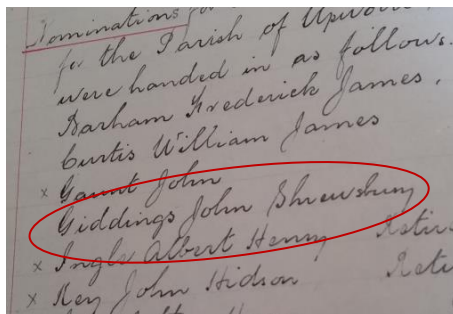 Nominations for
for the Parish of Upwood
were handed in as follows.
Barham Frederick James,
Curtis William James
x Gaunt John
Giddings John Shrewsbury
x Ingle Albert Henry Retir
x Key John Hidson Reti